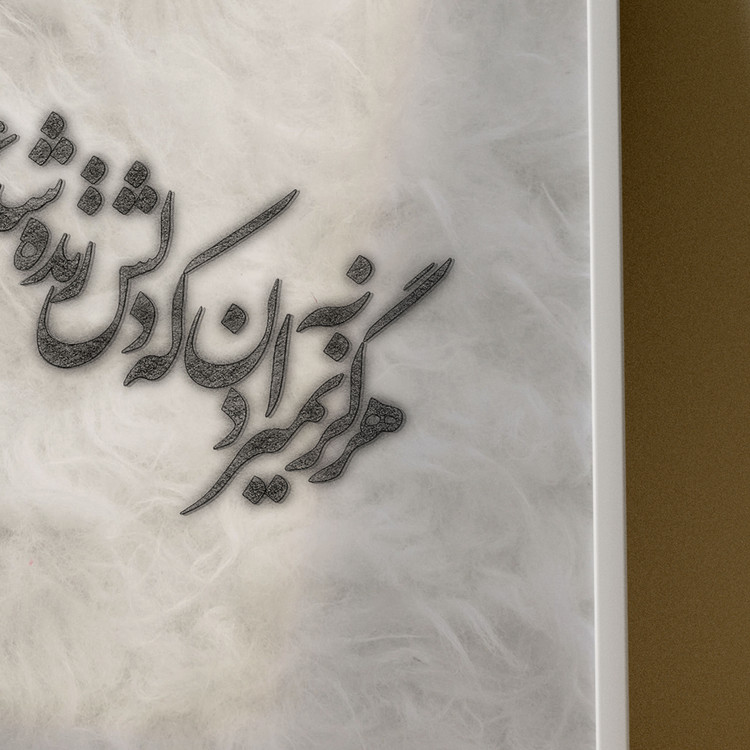 هرگز نمیرد آن که دلش زنده شد